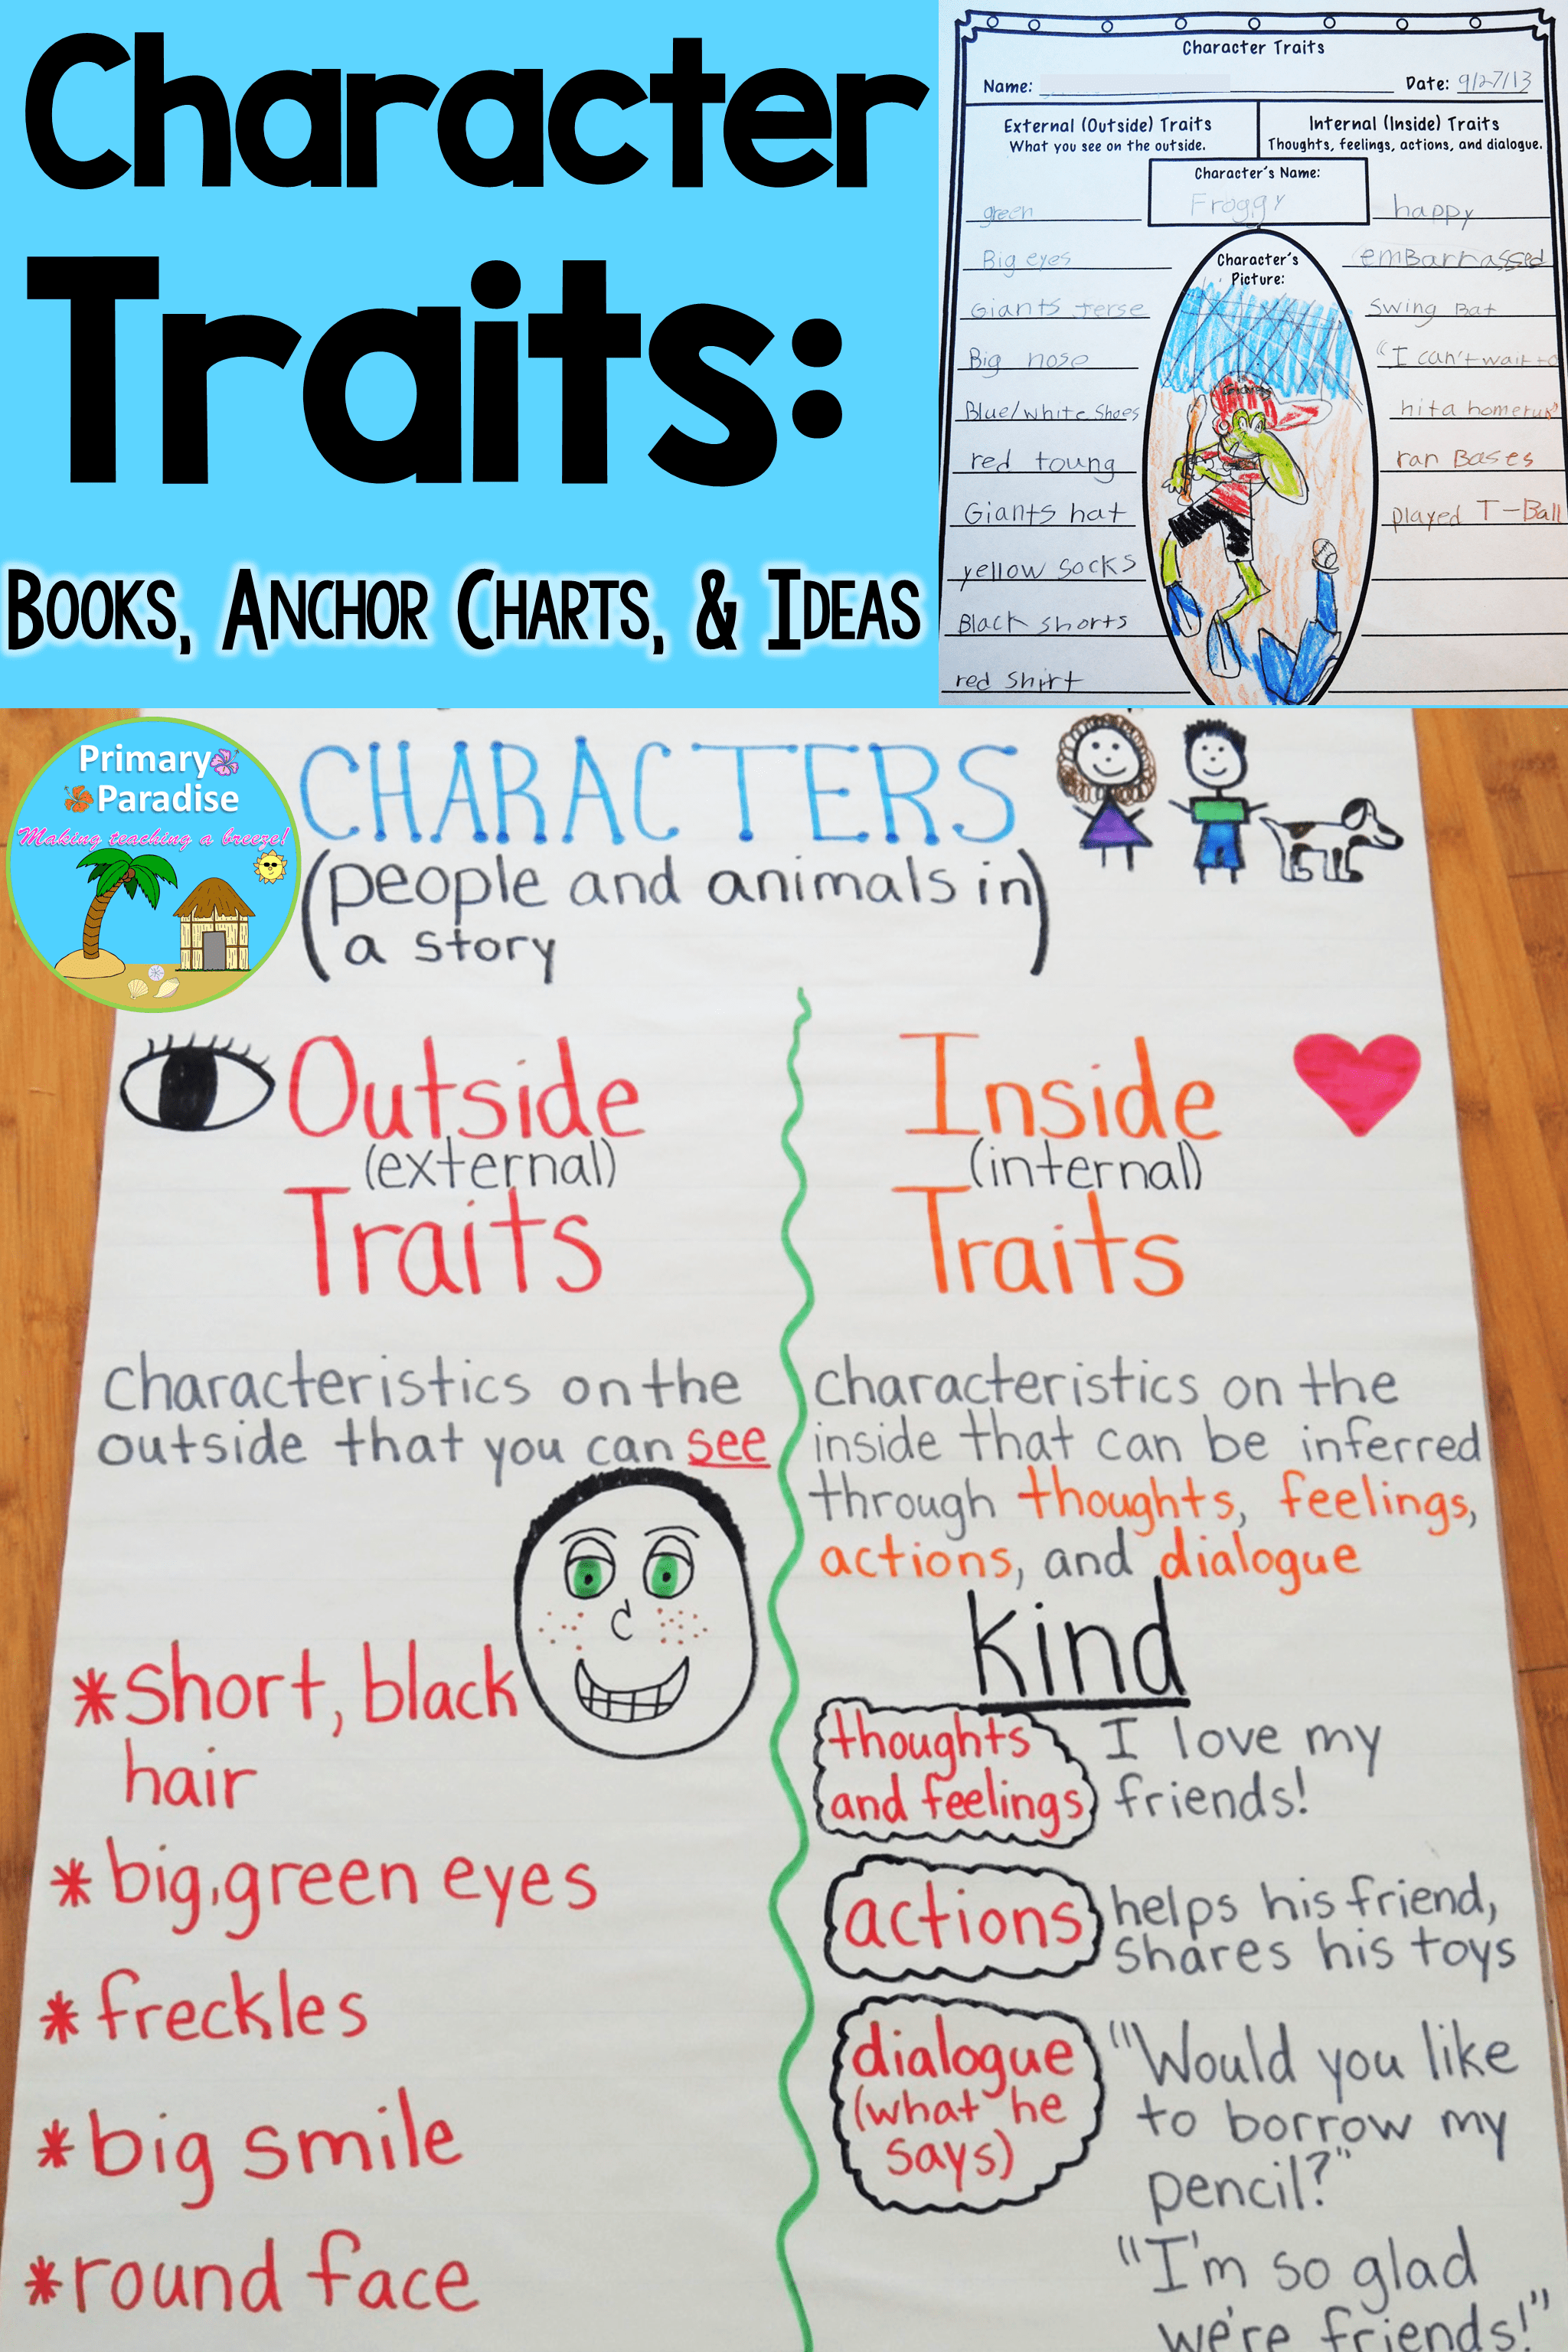 Character
Traits:
Books, Anchor Charts, & Ideas
Character Traits
Name:
Date: 9/27/13
External (Outside) Traits
What you see on the outside.
Internal (Inside) Traits
Thoughts, feelings, actions, and dialogue.
Character's Name:
Froggy
Character's
Picture:
green
Big eyes
Giants Jerse
Big nose
Blue/white Shoes
red toung
Giants hat
yellow socks
Black shorts
red shirt
happy
emBarrassed
Swing Bat
"I can't wait to
hit a homerun"
ran Bases
played T-Ball
Primary
Paradise
Making teaching a breeze!
CHARACTERS
(people and animals in
a story)
Outside
(external)
Traits
Characteristics on the
outside that you can see
*short, black
hair
*big, green eyes
*freckles
*big smile
*round face
Inside
(internal)
Traits
Characteristics on the
inside that can be inferred
through thoughts, feelings,
actions, and dialogue
kind
thoughts
and feelings
I love my
friends!
actions
helps his friend,
shares his toys
dialogue
(what he
says)
"Would you like
to borrow my
pencil?"
"I'm so glad
we're friends!"